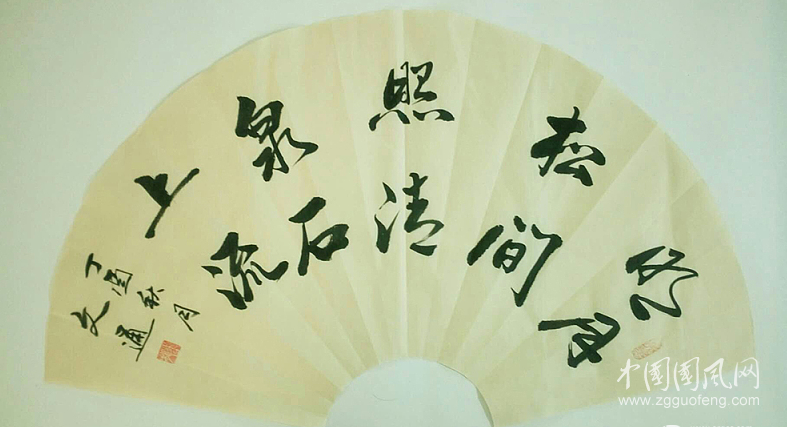 明月
松间
照清
泉石
上流
丁酉秋月
文通
中國國風网
www.zgguofeng.com